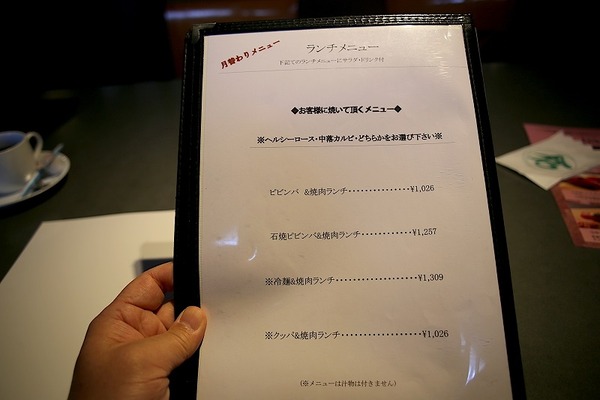 月替わりメニュー
ランチメニュー
下記てのランチメニューにサラダ・ドリンク付
◆お客様に焼いて頂くメニュー◆
※ヘルシーロース・中落カルビ・どちらかをお選び下さい※
ビビンバ &焼肉ランチ・・・・・・・・・・・・・・・¥1,026
石焼ビビンバ&焼肉ランチ・・・・・・・・・・・・¥1,257
※冷麺&焼肉ランチ・・・・・・・・・・・・・・・・・・・・¥1,309
※クッパ&焼肉ランチ・・・・・・・・・・・・・・・・・・・¥1,026
(※メニューは汁物は付きません)